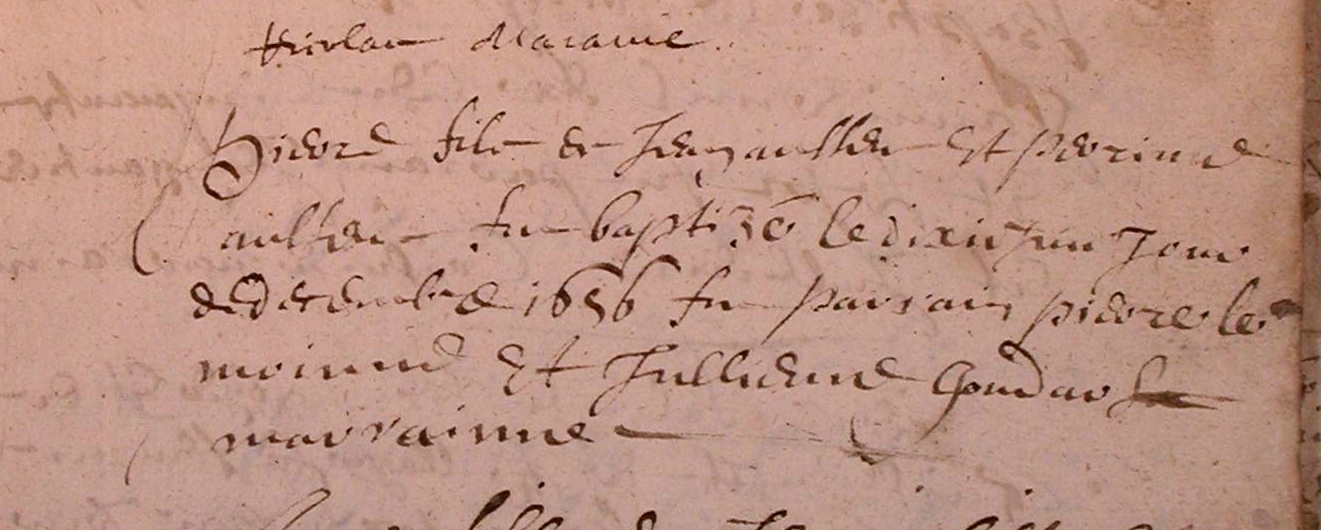 Nicolas Macarie
Pierre filz de Jean aultier Et perrinne
aultier fu baptizé le dixiesme Jour
de decembre 1656 fu parrain pierre le
moinne Et Jullienne
marrainne